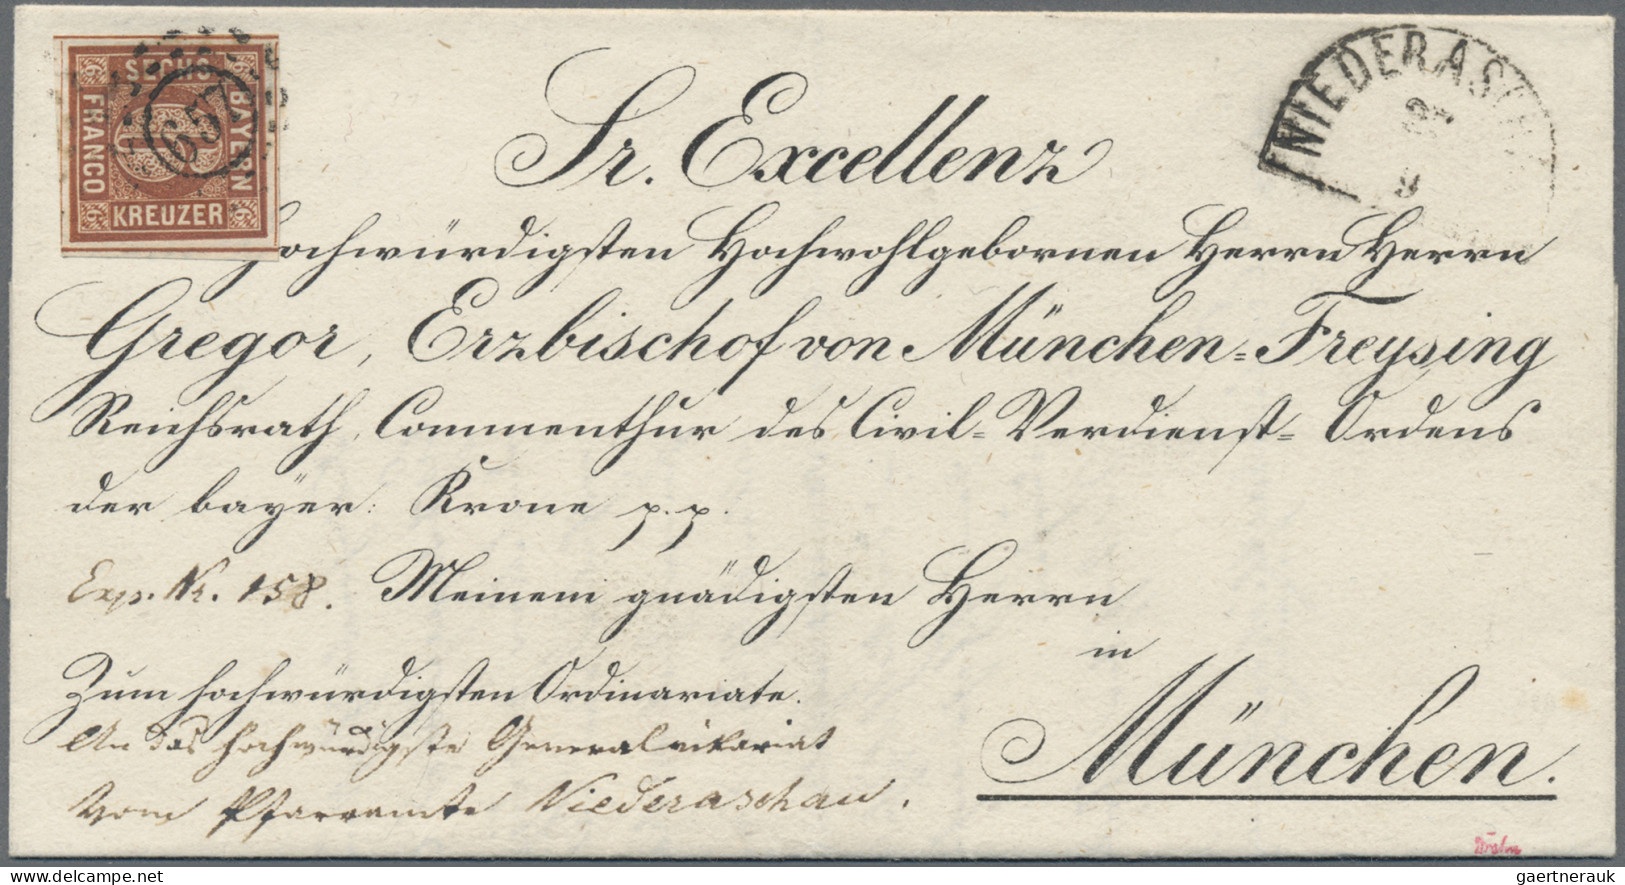 SECHS
BAYERN
FRANCO
KREUZER
6 6 6 6
657
NIEDERASCH
9
Sr. Excellenz
Hochwürdigsten Hochwohlgebornen Herrn Herrn
Gregor, Erzbischof von München-Freysing
Reichsrath, Commenthur des Civil-Verdienst-Ordens
der bayer: Krone p. p.
Exp. Nr. 158. Meinem gnädigsten Herrn
in
Zum hochwürdigsten Ordinariate.
München.
An das hochwürdigste Generalvikariat
Vom Pfarramte Niederaschau.
gaertnerauk